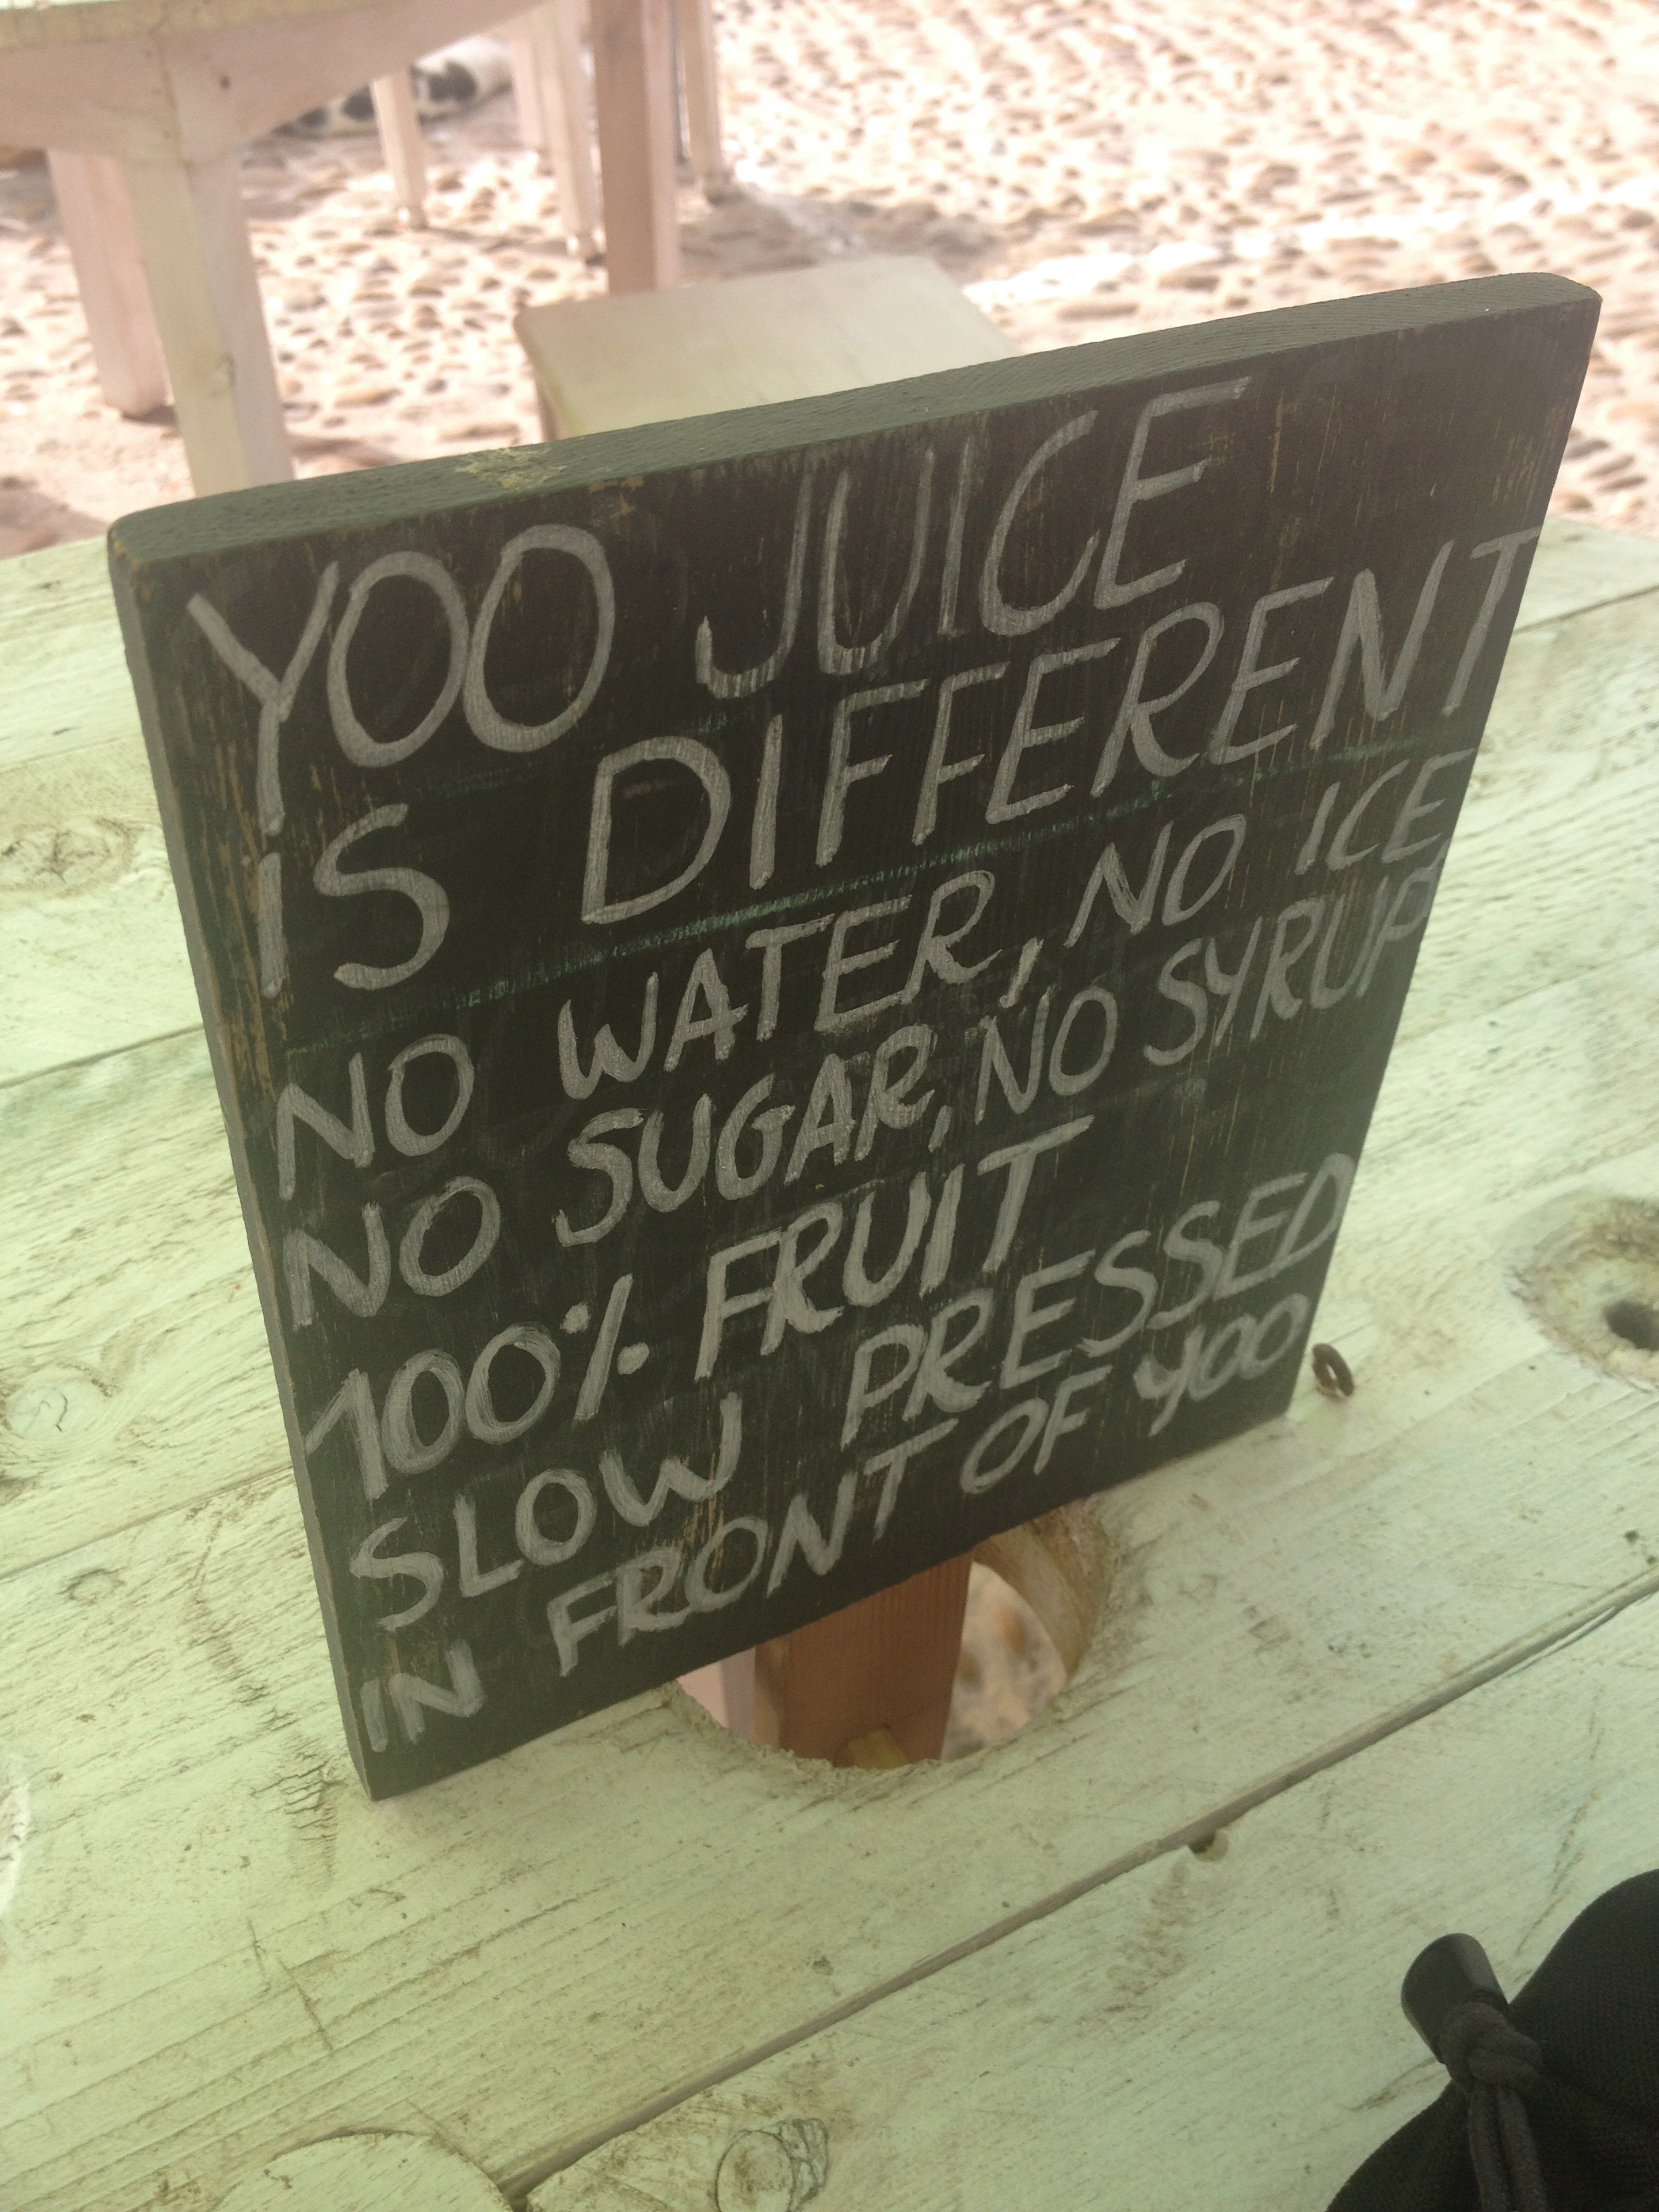 YOO JUICE
IS DIFFERENT
NO WATER, NO ICE,
NO SUGAR, NO SYRUP
100% FRUIT
SLOW PRESSED
IN FRONT OF YOO